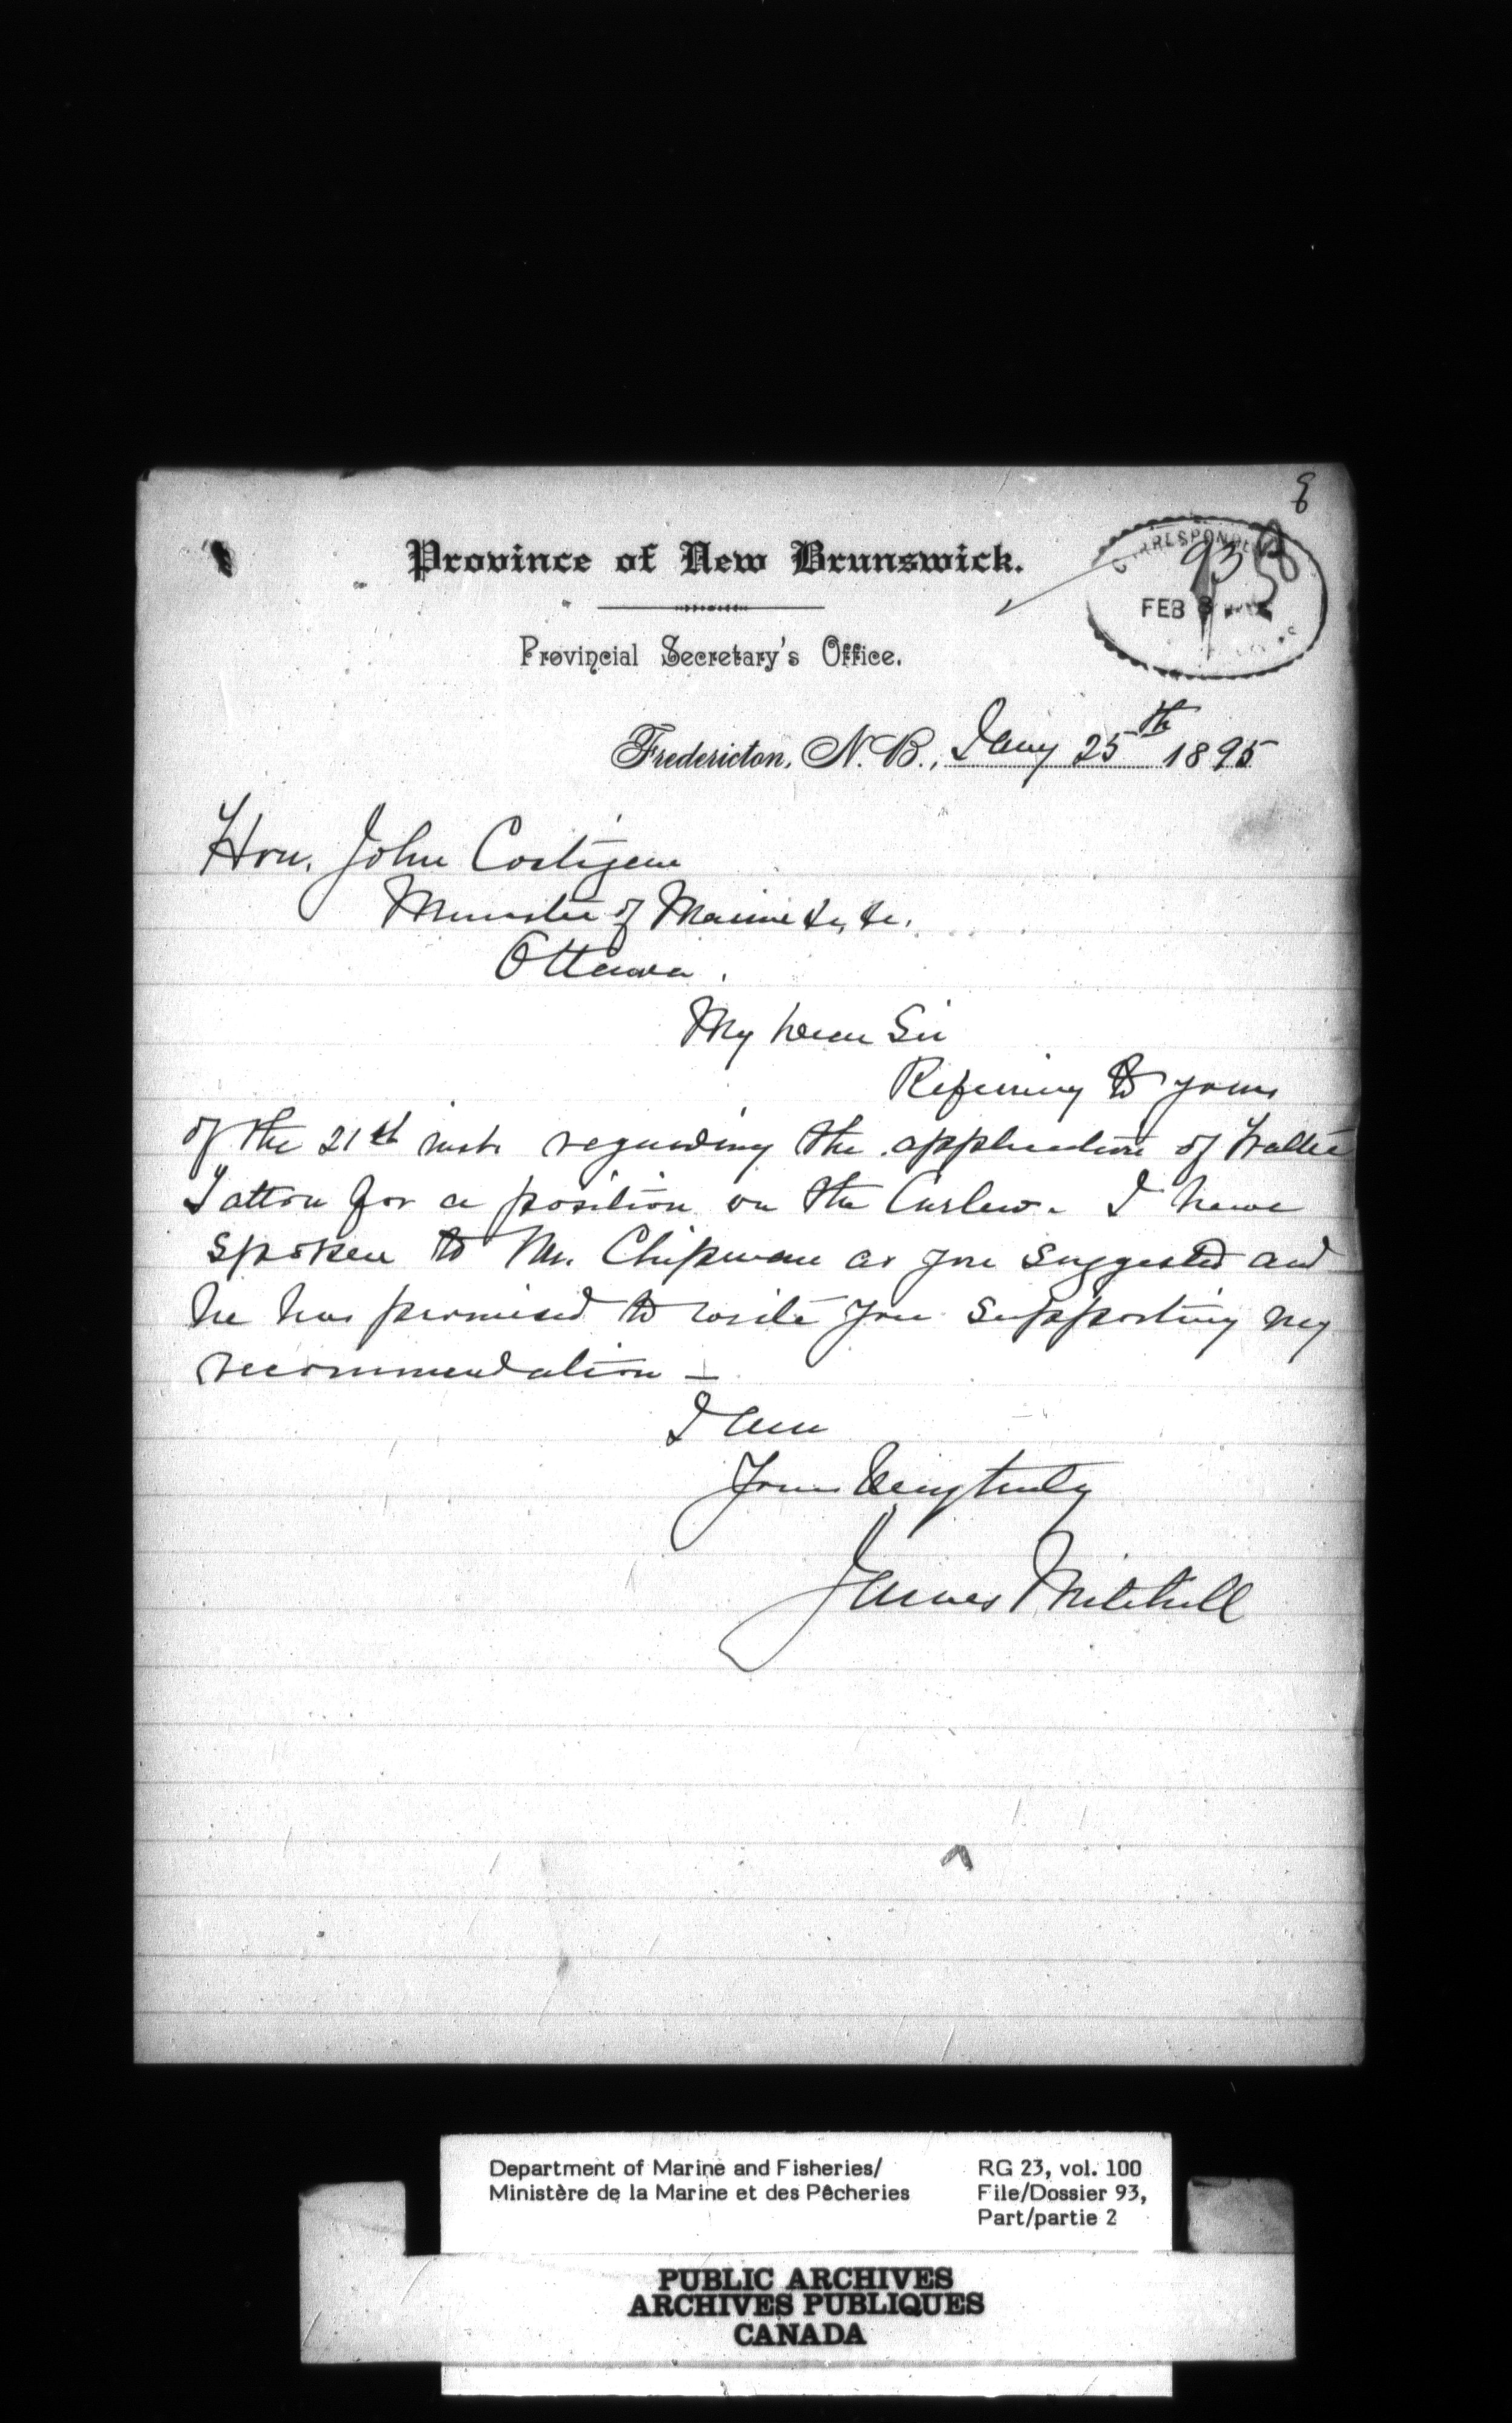 8
Province of New Brunswick.
CORRESPONDE
93
FEB 8
Provincial Secretary's Office.
Fredericton, N.B., Jany 25th 1895
Hon. John Costigan
Minister of Marine &c, &c.
Ottawa.
My Dear Sir
Referring to yours
of the 21st inst. regarding the application of Walter
Tatton for a position on the Curlew. I have
spoken to Mr. Chipman as you suggested and
he has promised to write you supporting my
recommendation —
I am
Yours Very truly
James Mitchell
Department of Marine and Fisheries/
Ministère de la Marine et des Pêcheries
RG 23, vol. 100
File/Dossier 93,
Part/partie 2
PUBLIC ARCHIVES
ARCHIVES PUBLIQUES
CANADA